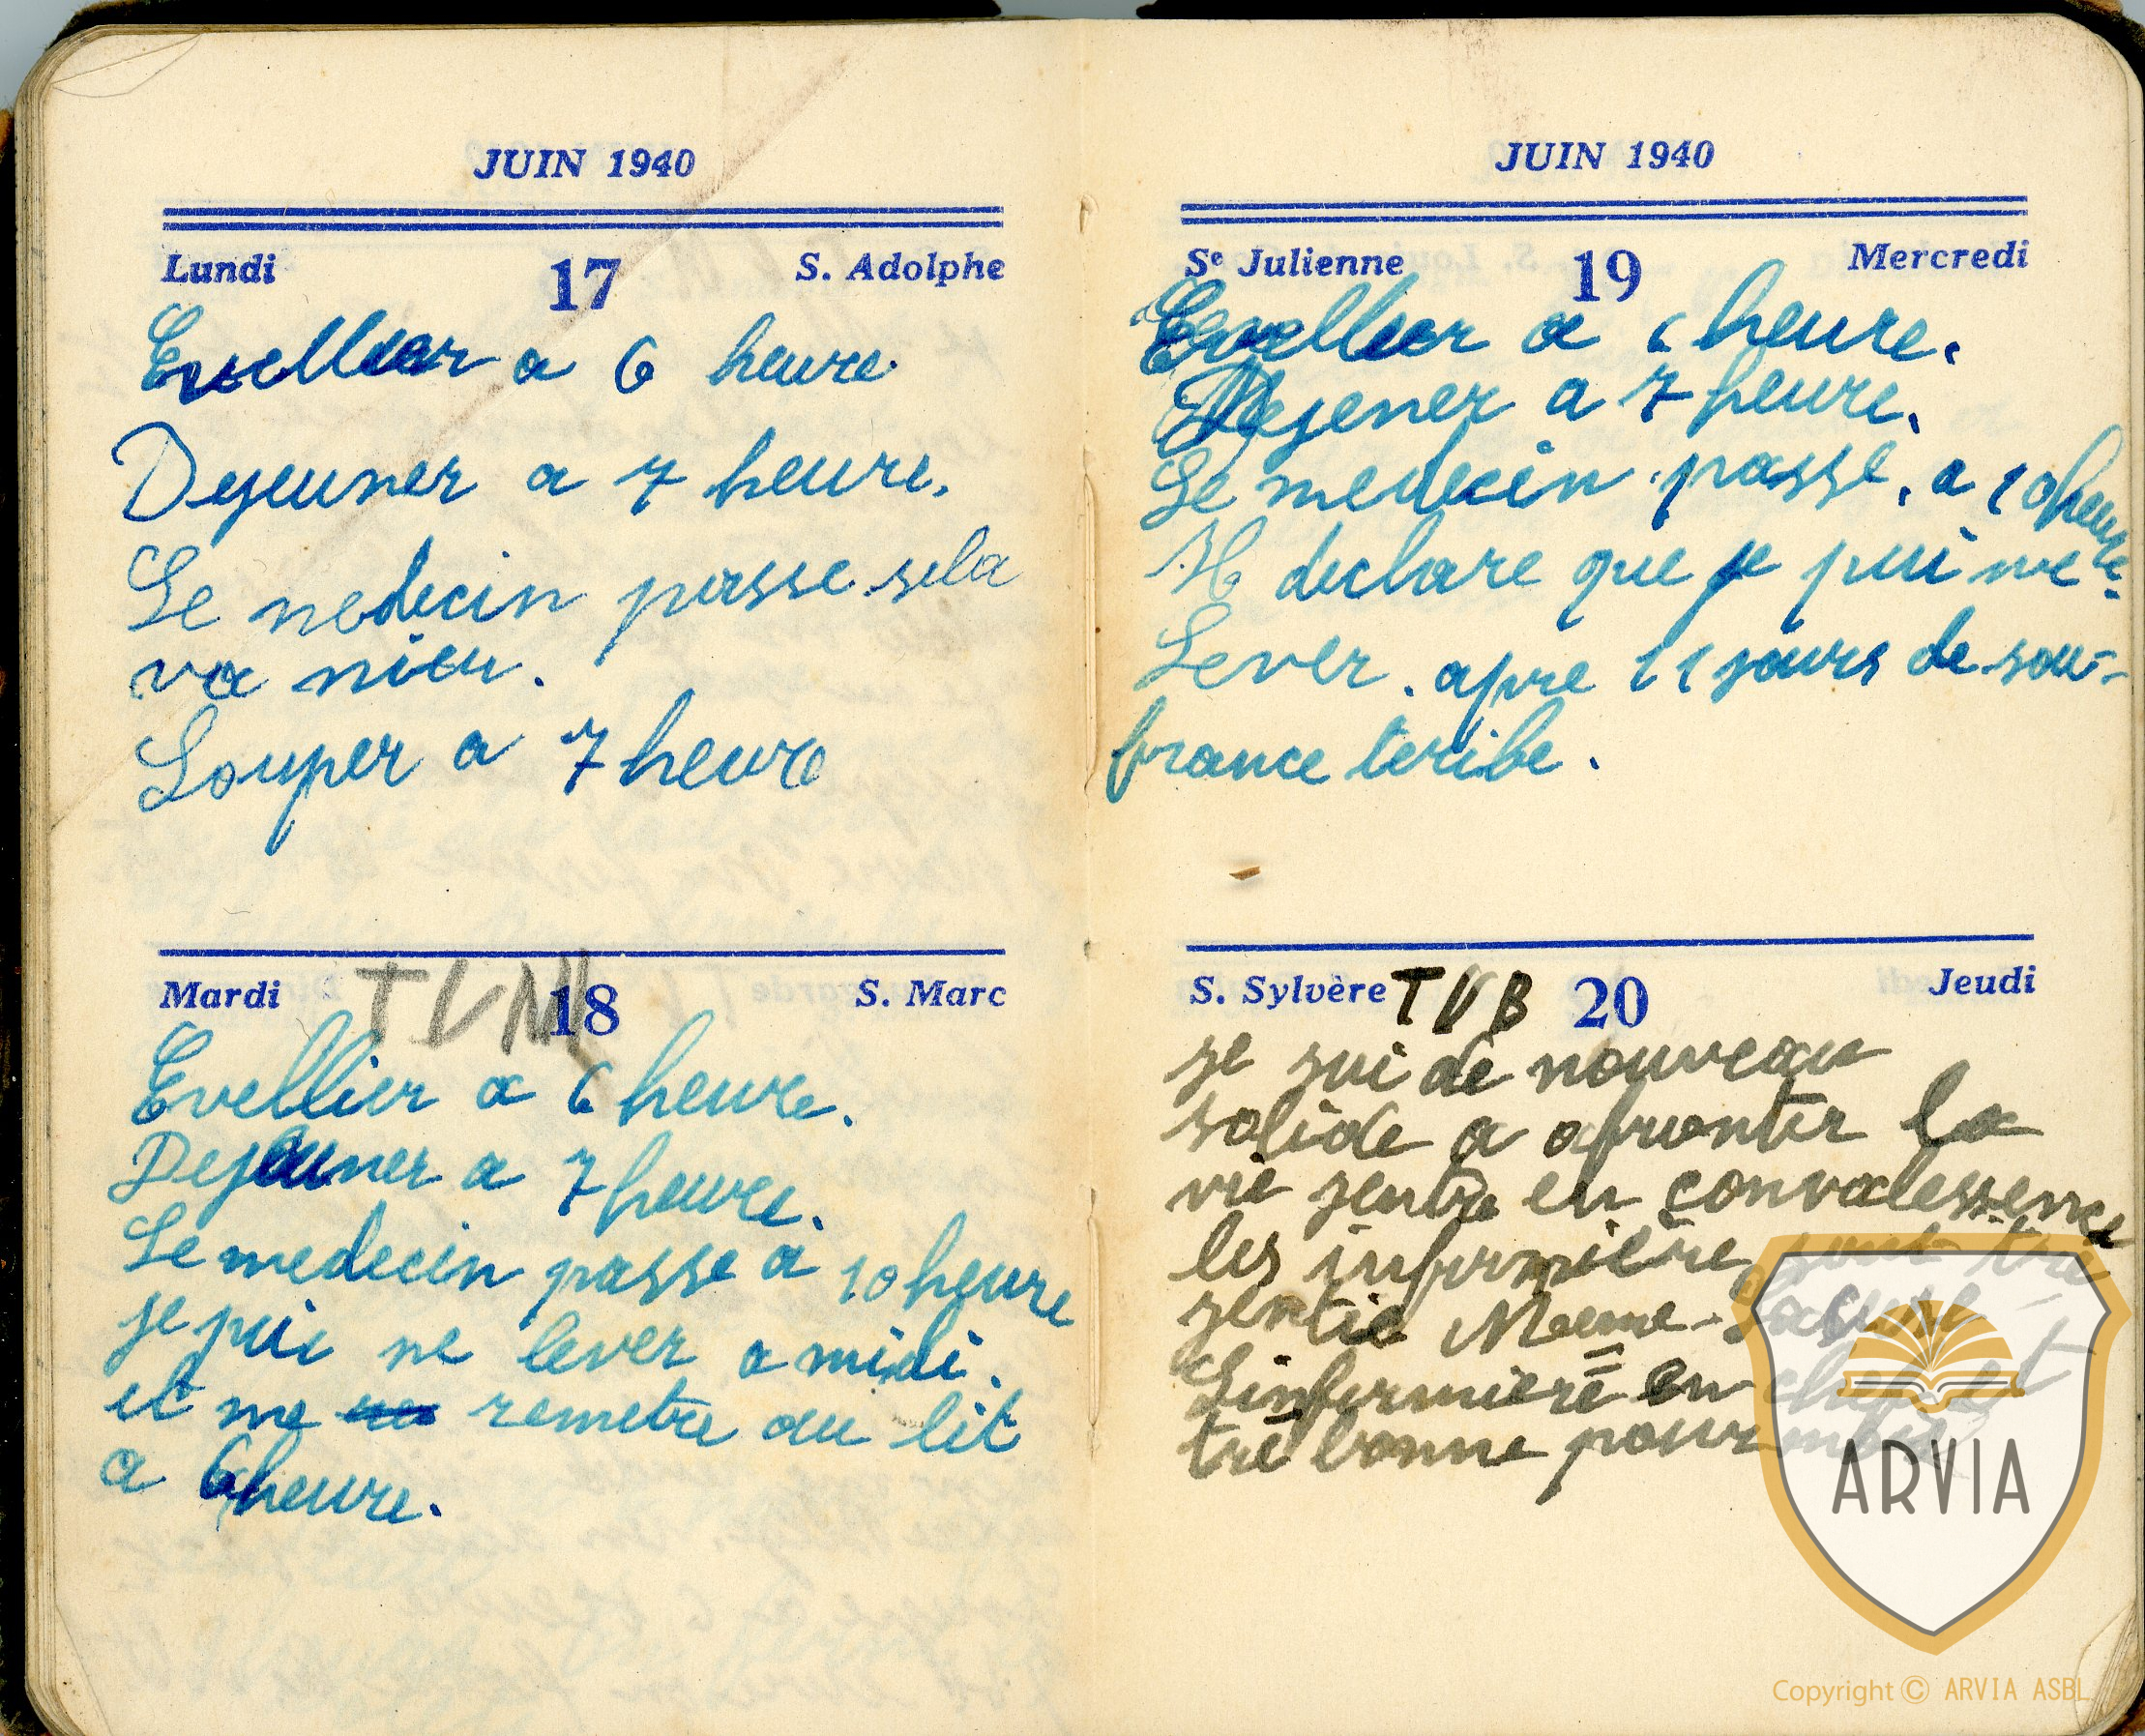 JUIN 1940
Lundi 17 S. Adolphe
Evellier a 6 heure.
Dejeuner a 7 heure.
Le nedecin passe sela
va nieu.
Souper a 7 heure
Mardi TVM 18 S. Marc
Evellier a 6 heure.
Dejeuner a 7 heure.
Le medecin passe a 10 heure
je pui ne lever a midi.
et me remetre au lit
a 6 heure.
JUIN 1940
Sᵉ Julienne 19 Mercredi
Evellier a 6 heure.
Dejener a 7 heure.
Le medecin passe, a 10 heure.
Il declare que je pui me
Lever. apre 11 jours de sou-
france teribe.
S. Sylvère TVB 20 Jeudi
je sui de nouveau
solide a afronter la
vie jentre en convalessence
les infirmière sont tre
jentie Meme
Linfirmiere en chef et
tré bonne pour moi
ARVIA
Copyright © ARVIA ASBL